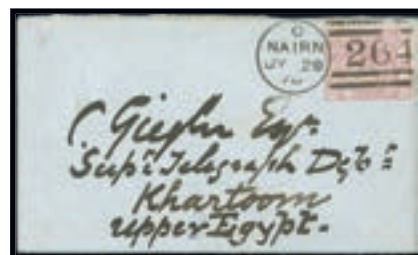 NAIRN
JY 28
264
C Giegler Esqr.
Supt. Telegraph Dept.
Khartoom
Upper Egypt.